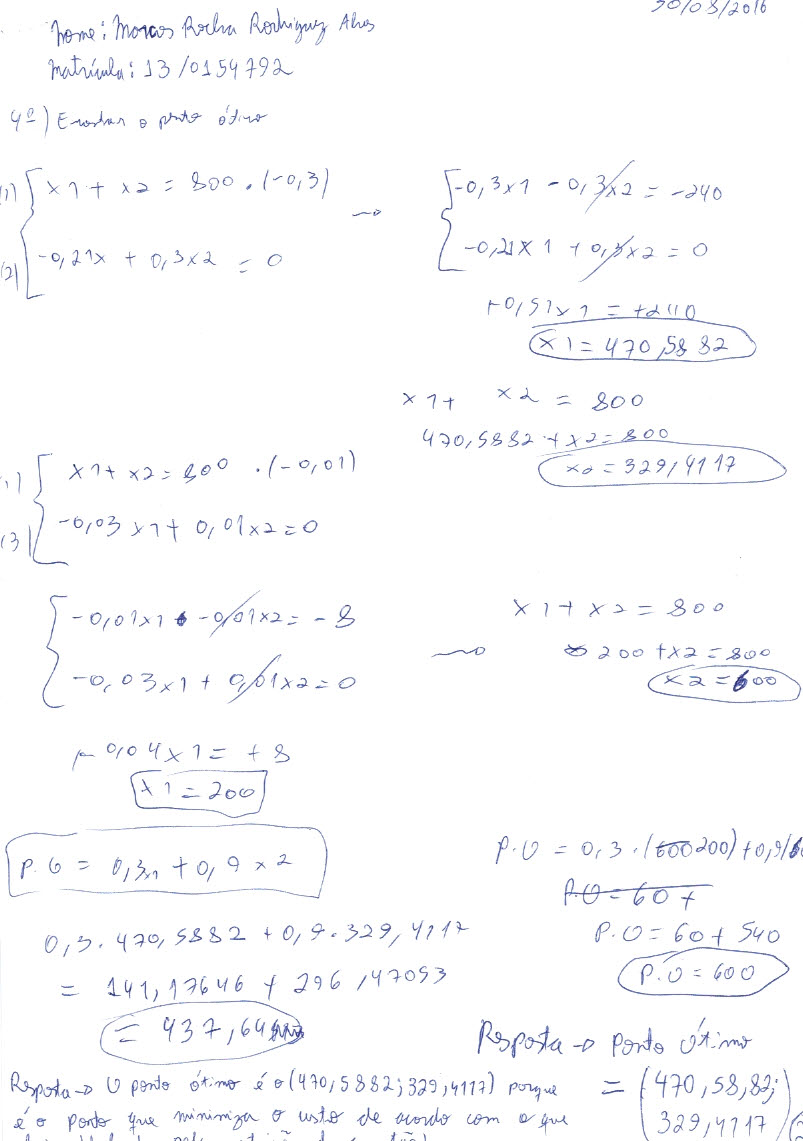 30/08/2016
Nome: Marcos Rocha Rodrigues Alves
Matrícula: 13/0154792
4º) Encontrar o ponto ótimo
(1) x1 + x2 = 800 . (-0,3)
(2) -0,21x + 0,3x2 = 0
→
-0,3x1 - 0,3x2 = -240
-0,21x1 + 0,3x2 = 0
+0,51x1 = +240
x1 = 470,5882
x1 + x2 = 800
470,5882 + x2 = 800
x2 = 329,4117
(1) x1 + x2 = 800 . (-0,01)
(3) -0,03x1 + 0,01x2 = 0
-0,01x1 -0,01x2 = -8
-0,03x1 + 0,01x2 = 0
→
x1 + x2 = 800
200 + x2 = 800
x2 = 600
0,04x1 = +8
x1 = 200
P.O = 0,3x1 + 0,9x2
P.O = 0,3.(600 200) + 0,9
P.O = 60 +
P.O = 60 + 540
P.O = 600
0,3.470,5882 + 0,9.329,4117
= 141,17646 + 296,47053
= 437,64
Resposta → Ponto ótimo
= (470,58,82;
329,4117
Resposta → O ponto ótimo é o (470,5882; 329,4117) porque
é o ponto que minimiza o custo de acordo com o que